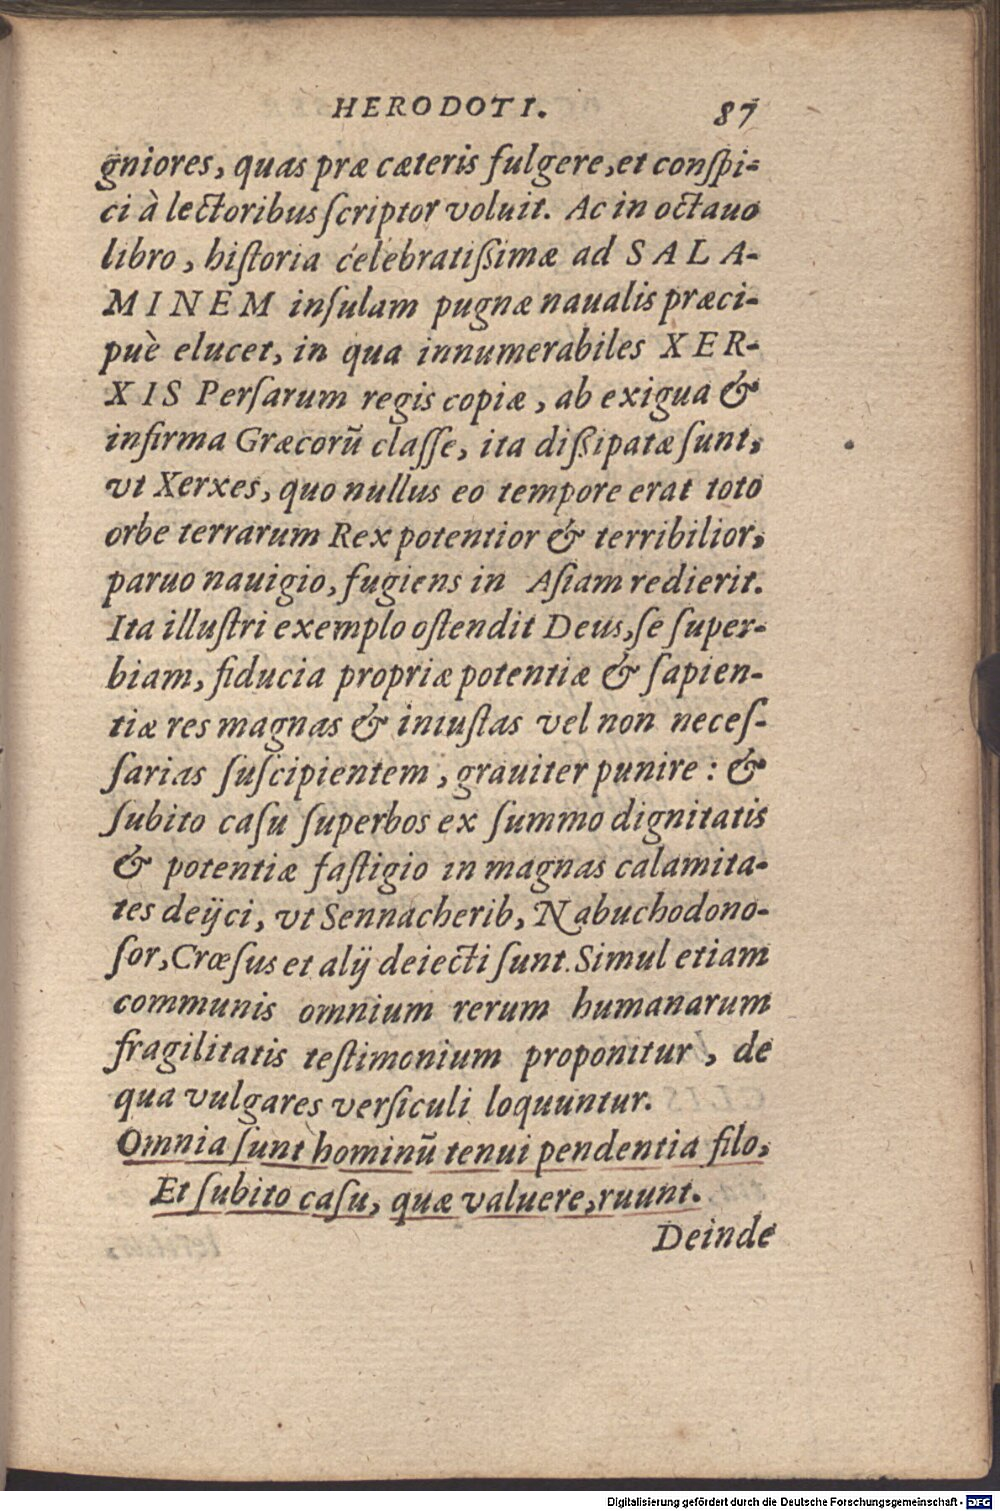 HERODOTI. 87
gniores, quas præ cæteris fulgere, et conſpi-
ci à lectoribus ſcriptor voluit. Ac in octauo
libro, hiſtoria celebratißimæ ad SALA-
MINEM inſulam pugnæ naualis præci-
puè elucet, in qua innumerabiles XER-
XIS Perſarum regis copiæ, ab exigua &
infirma Græcorū claſſe, ita dißipatæ ſunt,
vt Xerxes, quo nullus eo tempore erat toto
orbe terrarum Rex potentior & terribilior,
paruo nauigio, fugiens in Aſiam redierit.
Ita illuſtri exemplo oſtendit Deus, ſe ſuper-
biam, fiducia propriæ potentiæ & ſapien-
tiæ res magnas & iniuſtas vel non neceſ-
ſarias ſuſcipientem, grauiter punire: &
ſubito caſu ſuperbos ex ſummo dignitatis
& potentiæ faſtigio in magnas calamita-
tes deijci, vt Sennacherib, Nabuchodono-
ſor, Crœſus et alij deiecti ſunt. Simul etiam
communis omnium rerum humanarum
fragilitatis teſtimonium proponitur, de
qua vulgares verſiculi loquuntur.
Omnia ſunt hominū tenui pendentia filo,
Et ſubito caſu, quæ valuere, ruunt.
Deinde
Digitalisierung gefördert durch die Deutsche Forschungsgemeinschaft - DFG